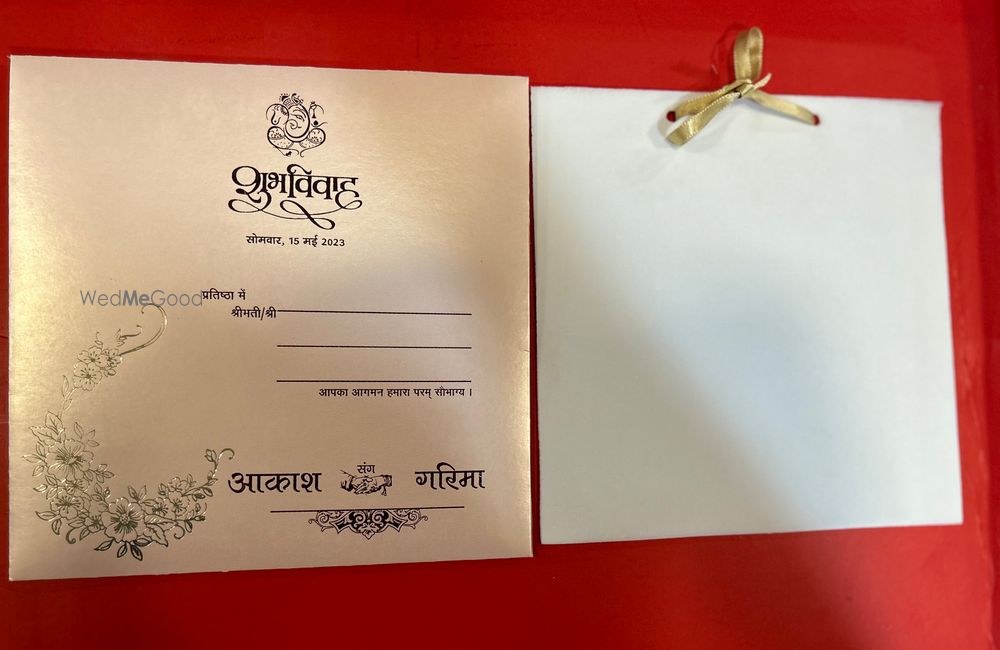 शुभविवाह
सोमवार, 15 मई 2023
WedMeGood
प्रतिष्ठा में
श्रीमती/श्री
आपका आगमन हमारा परम् सौभाग्य ।
आकाश संग गरिमा